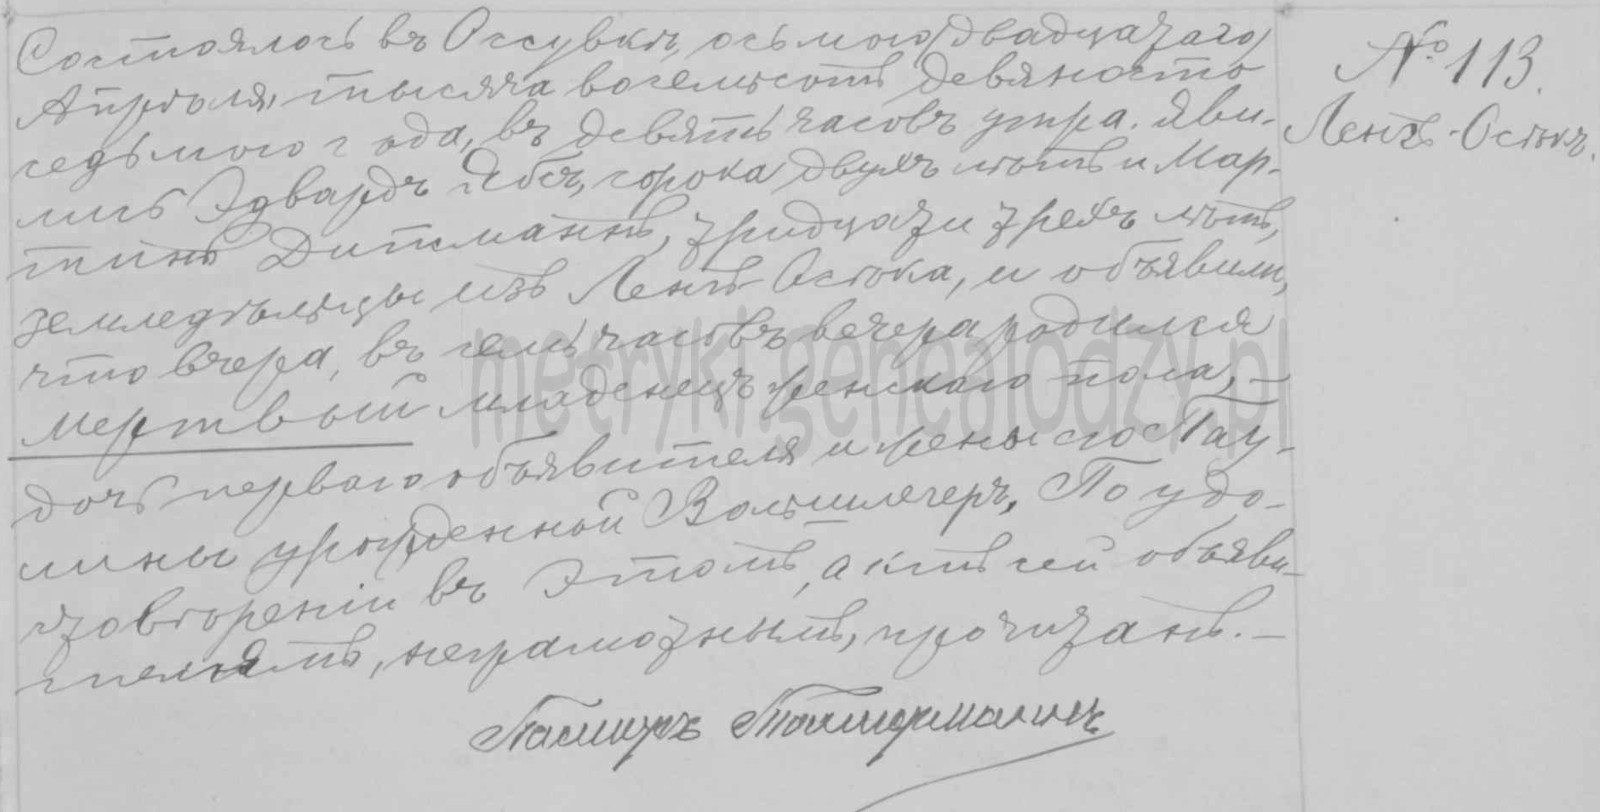 Состоялось въ Оссувкѣ, осьмого (двадцатаго)
Апрѣля, тысяча восемьсотъ девяносто
седьмого года, въ девять часовъ утра. Яви-
лись Эдвардъ Ябсъ, сорока двухъ лѣтъ и Мар-
тинъ Дитманнъ, тридцати трехъ лѣтъ,
земледѣльцы изъ Ленъ-Осѣка, и объявили,
что вчера, въ семь часовъ вечера родился
мертвый младенецъ женскаго пола, –
дочь перваго объявителя и жены его Пау-
лины урожденной Вольшлегеръ. По удо-
стовѣреніи въ этомъ, актъ сей объяви-
телямъ, неграмотнымъ, прочитанъ. –
Пасторъ
№ 113.
Ленъ-Осѣкъ.
metryki.genealodzy.pl